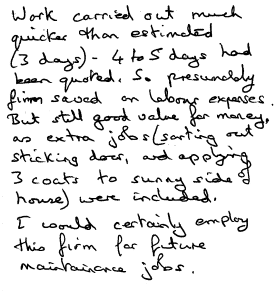 Work carried out much
quicker than estimated
(3 days) - 4 to 5 days had
been quoted. So presumably
firm saved on labour expenses.
But still good value for money,
as extra jobs (sorting out
sticking door, and applying
3 coats to sunny side of
house) were included.
I would certainly employ
this firm for future
maintainance jobs.